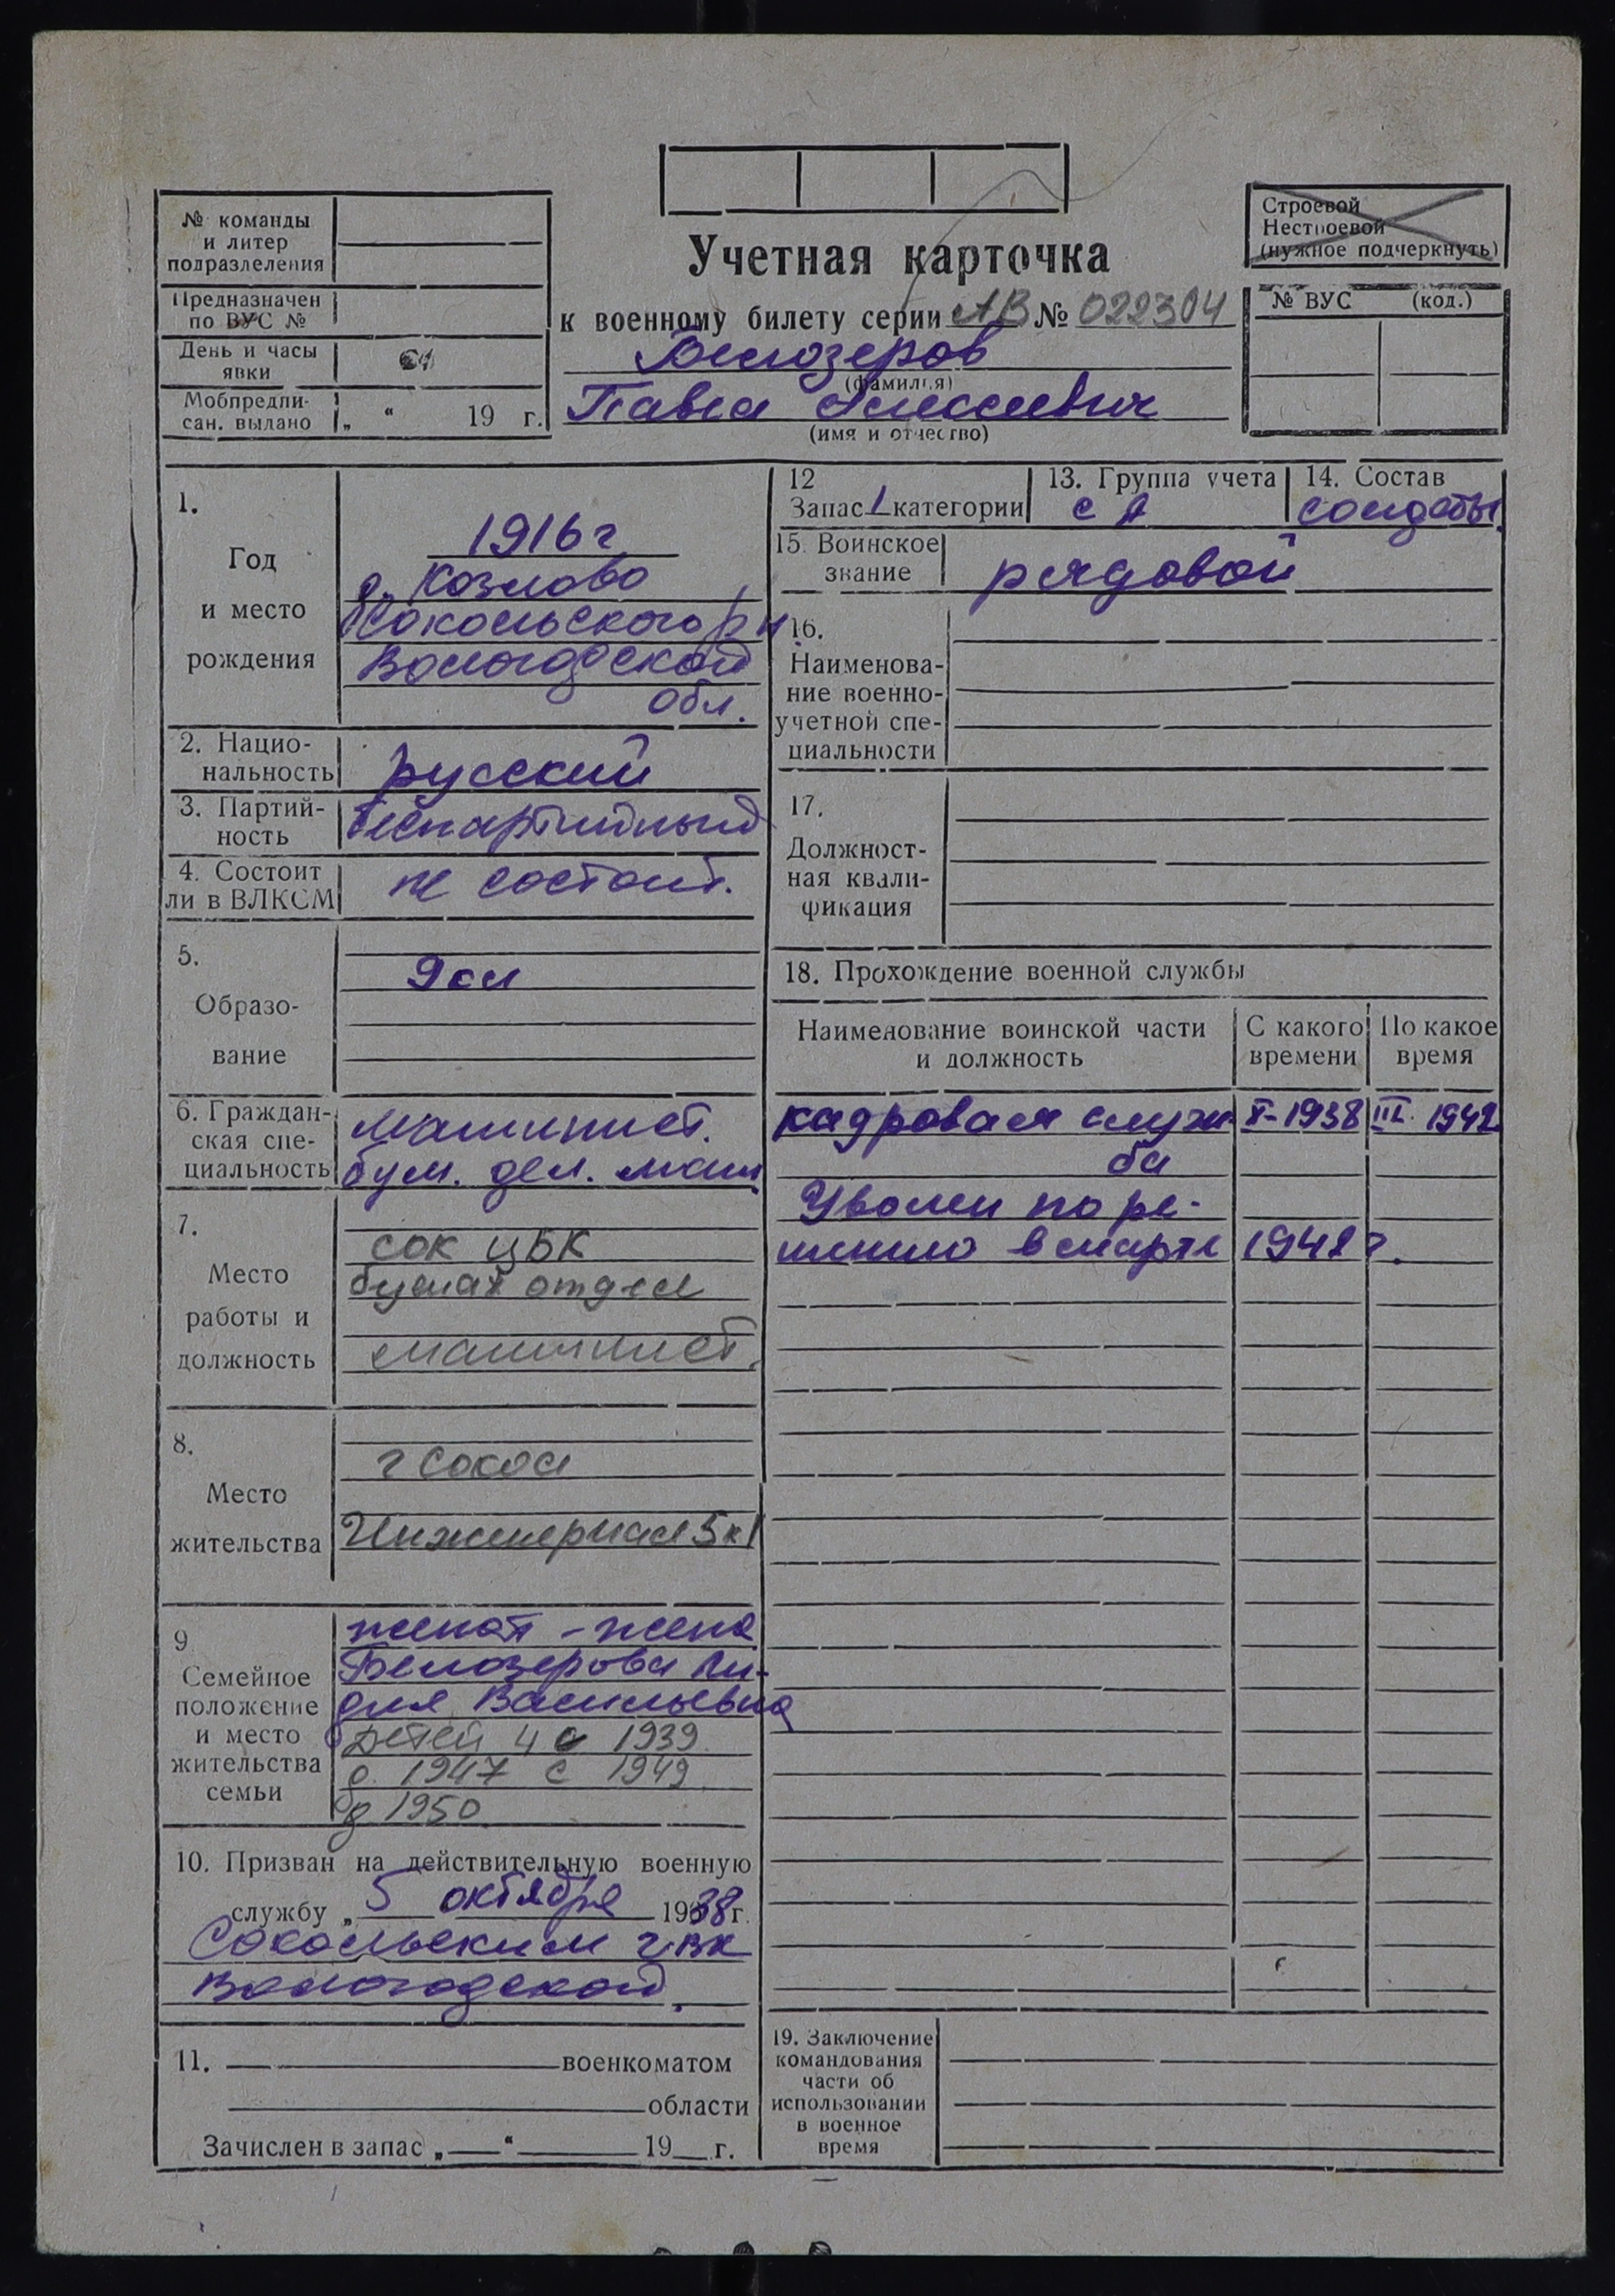 № команды
и литер
подразделения
Строевой
Нестроевой
(нужное подчеркнуть)
Учетная карточка
Предназначен
по ВУС №
к военному билету серии АВ № 022304
№ ВУС (код.)
День и часы
явки
Белозеров
(фамилия)
Мобпредпи-
сан. выдано „ “ 19 г.
Павел Алексеевич
(имя и отчество)
1.
Год
и место
рождения
1916 г
д. Козлово
Сокольского р н
Вологодской
обл.
2. Нацио-
нальность
русский
3. Партий-
ность
беспартийный
4. Состоит
ли в ВЛКСМ
не состоит.
5.
Образо-
вание
9 кл
6. Граждан-
ская спе-
циальность
Машинист.
бум. дел. маш.
7.
Место
работы и
должность
сок ЦБК
бумаж отдел
машинист.
8.
Место
жительства
г Сокол
Инженерная 5 к 1
9.
Семейное
положение
и место
жительства
семьи
женат - жена
Белозерова Ли-
дия Васильевна
Детей 4 с 1939
д. 1947 с 1949
д 1950
10. Призван на действительную военную
службу „ 5 октября 1938 г.
Сокольским ГВК
Вологодской.
11. военкоматом
области
Зачислен в запас „ “ 19 г.
12
Запас 1 категории
13. Группа учета
СА
14. Состав
солдаты.
15. Воинское
звание
рядовой
16.
Наименова-
ние военно-
учетной спе-
циальности
17.
Должност-
ная квали-
фикация
18. Прохождение военной службы
Наименование воинской части
и должность
С какого
времени
По какое
время
кадровая служ- X-1938 III. 1942
ба
Уволен по ре-
в марте 1942 г.
19. Заключение
командования
части об
использовании
в военное
время